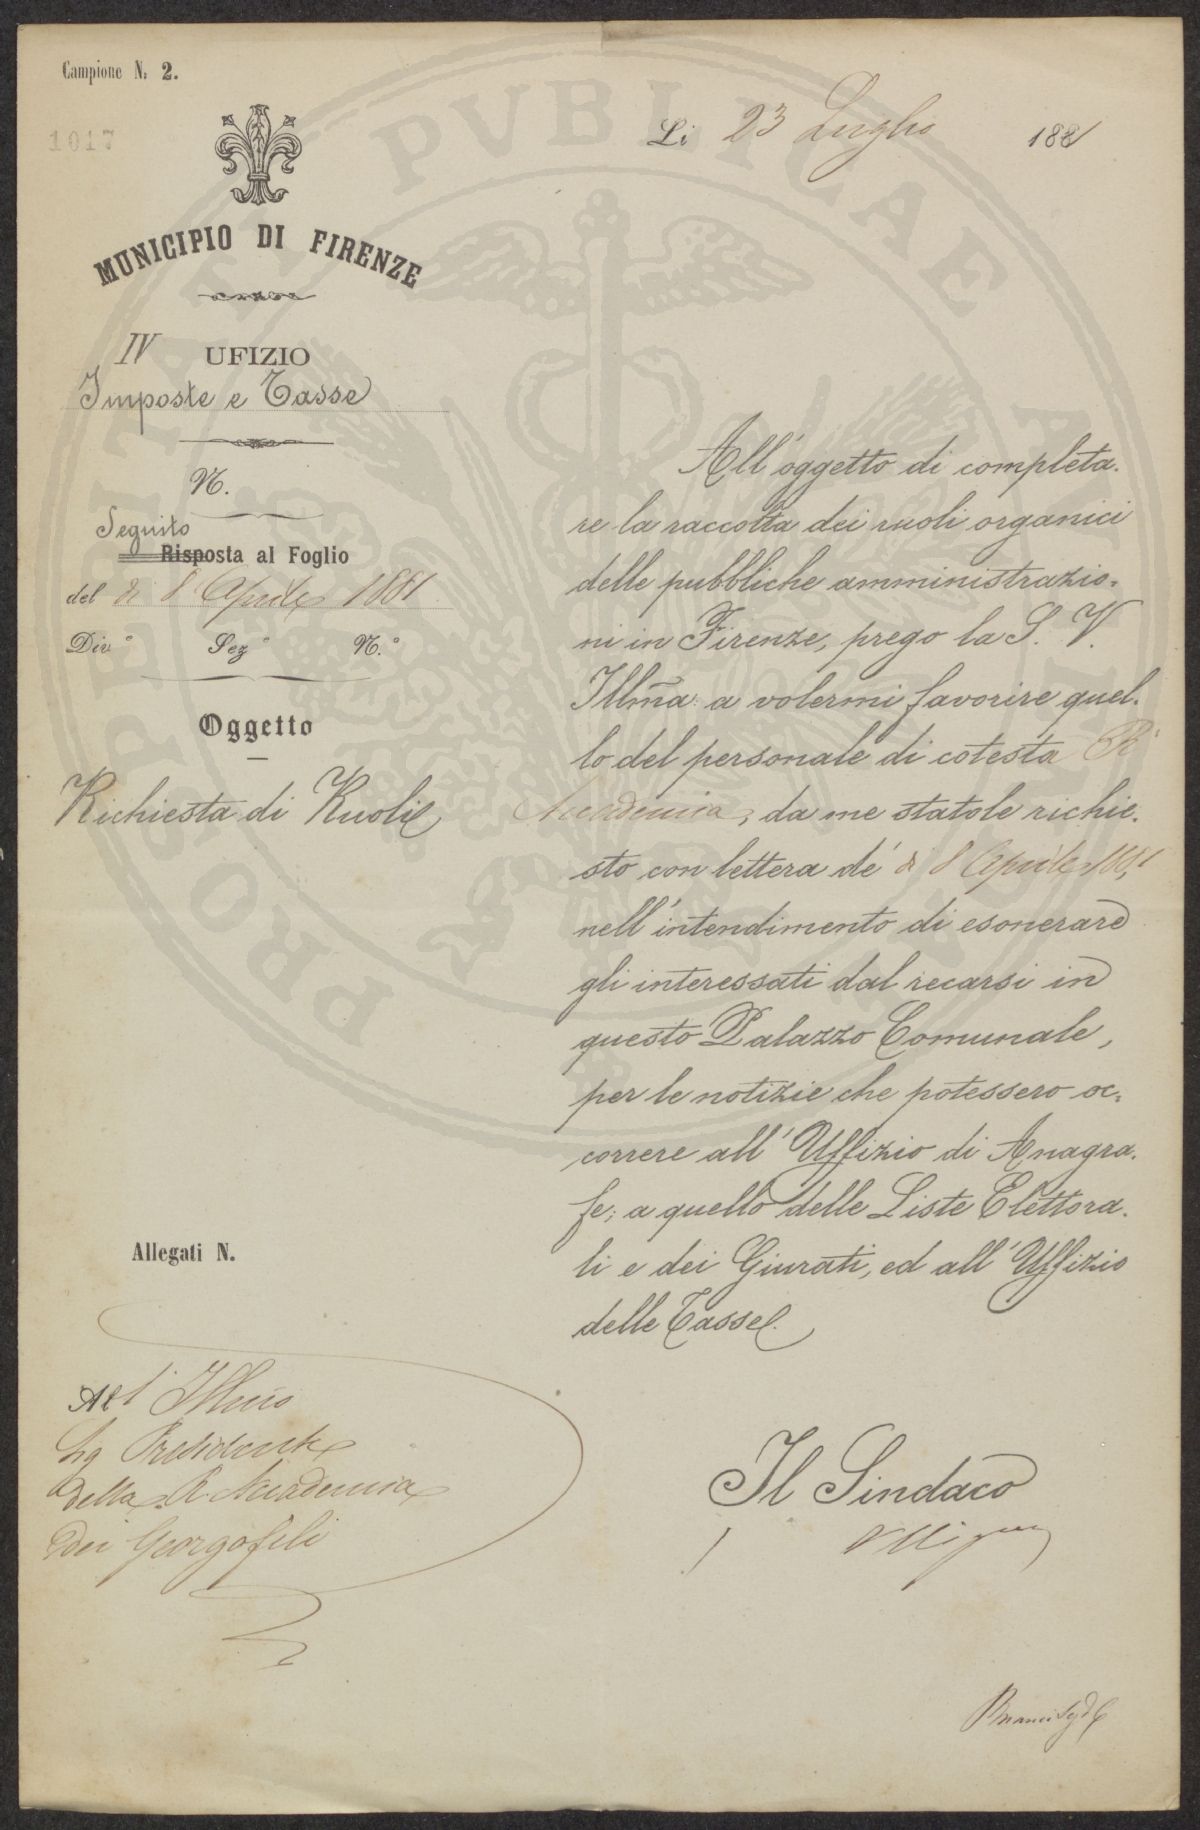 Campione N. 2.
1017
Li 23 Luglio 1881
MUNICIPIO DI FIRENZE
IV UFIZIO
Imposte e Tasse
N.
Seguito
Risposta al Foglio
del dì 8 Aprile 1881
Div.° Sez.° N.°
Oggetto
Richiesta di Ruoli
All'oggetto di completa-
re la raccolta dei ruoli organici
delle pubbliche amministrazio-
ni in Firenze, prego la S. V.
Illma: a volermi favorire quel-
lo del personale di cotesta R.
Accademia, da me statole richie-
sto con lettera de' dì 8 Aprile 1881,
nell'intendimento di esonerare
gli interessati dal recarsi in
questo Palazzo Comunale,
per le notizie che potessero oc-
correre all'Uffizio di Anagra-
fe; a quello delle Liste Elettora-
li e dei Giurati, ed all'Uffizio
delle Tasse.
Allegati N.
All'Illmo
Sig Presidente
della R. Accademia
dei Georgofili
Il Sindaco
PROSPERITATI PVBLICAE AVGENDAE